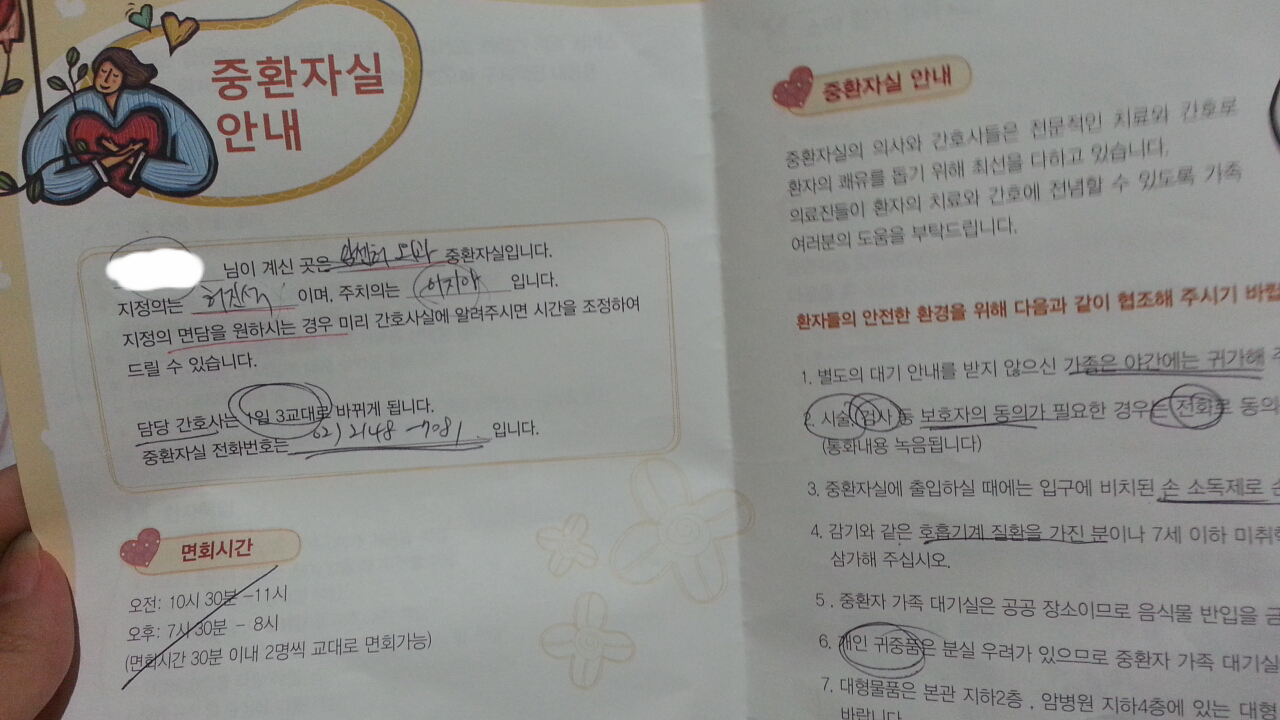 중환자실
안내
님이 계신 곳은 암센터 중환자실입니다.
지정의는 이며, 주치의는 이지아 입니다.
지정의 면담을 원하시는 경우 미리 간호사실에 알려주시면 시간을 조정하여
드릴 수 있습니다.
담당 간호사는 1일 3교대로 바뀌게 됩니다.
중환자실 전화번호는 02) 2148 - 7081 입니다.
면회시간
오전: 10시 30분 - 11시
오후: 7시 30분 - 8시
(면회시간 30분 이내 2명씩 교대로 면회가능)
중환자실 안내
중환자실의 의사와 간호사들은 전문적인 치료와 간호로
환자의 쾌유를 돕기 위해 최선을 다하고 있습니다.
의료진들이 환자의 치료와 간호에 전념할 수 있도록 가족
여러분의 도움을 부탁드립니다.
환자들의 안전한 환경을 위해 다음과 같이 협조해 주시기 바랍
1. 별도의 대기 안내를 받지 않으신 가족은 야간에는 귀가해
2. 시술, 검사 등 보호자의 동의가 필요한 경우는 전화로 동의
(통화내용 녹음됩니다)
3. 중환자실에 출입하실 때에는 입구에 비치된 손 소독제로 손
4. 감기와 같은 호흡기계 질환을 가진 분이나 7세 이하 미취학
삼가해 주십시오.
5. 중환자 가족 대기실은 공공 장소이므로 음식물 반입을 금
6. 개인 귀중품은 분실 우려가 있으므로 중환자 가족 대기실
7. 대형물품은 본관 지하2층, 암병원 지하4층에 있는 대형
바랍니다.